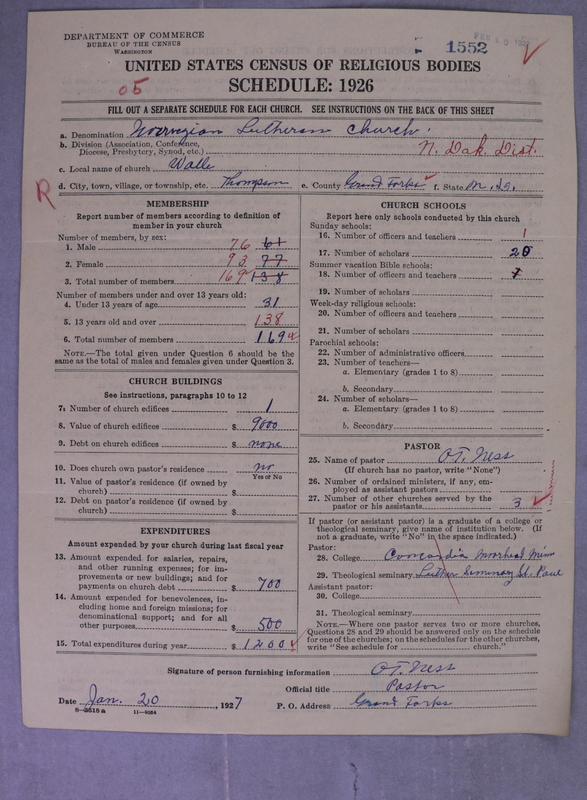 DEPARTMENT OF COMMERCE
BUREAU OF THE CENSUS
WASHINGTON
1552
UNITED STATES CENSUS OF RELIGIOUS BODIES
05
SCHEDULE: 1926
FILL OUT A SEPARATE SCHEDULE FOR EACH CHURCH. SEE INSTRUCTIONS ON THE BACK OF THIS SHEET
a. Denomination Norwegian Lutheran Church
b. Division (Association, Conference, Diocese, Presbytery, Synod, etc.) N. Dak. Dist.
c. Local name of church Walle
R
d. City, town, village, or township, etc. Thompson e. County Grand Forks f. State N. D.
MEMBERSHIP
Report number of members according to definition of member in your church
Number of members, by sex:
1. Male 76 61
2. Female 93 77
3. Total number of members 169 138
Number of members under and over 13 years old:
4. Under 13 years of age 31
5. 13 years old and over 138
6. Total number of members 169
NOTE.—The total given under Question 6 should be the same as the total of males and females given under Question 3.
CHURCH BUILDINGS
See instructions, paragraphs 10 to 12
7. Number of church edifices 1
8. Value of church edifices $ 9000
9. Debt on church edifices $ none
10. Does church own pastor's residence? no
Yes or No
11. Value of pastor's residence (if owned by church) $
12. Debt on pastor's residence (if owned by church) $
EXPENDITURES
Amount expended by your church during last fiscal year
13. Amount expended for salaries, repairs, and other running expenses; for improvements or new buildings; and for payments on church debt $ 700
14. Amount expended for benevolences, including home and foreign missions; for denominational support; and for all other purposes $ 500
15. Total expenditures during year $ 1200
CHURCH SCHOOLS
Report here only schools conducted by this church
Sunday schools:
16. Number of officers and teachers 1
17. Number of scholars 20
Summer vacation Bible schools:
18. Number of officers and teachers
19. Number of scholars
Week-day religious schools:
20. Number of officers and teachers
21. Number of scholars
Parochial schools:
22. Number of administrative officers
23. Number of teachers—
a. Elementary (grades 1 to 8)
b. Secondary
24. Number of scholars—
a. Elementary (grades 1 to 8)
b. Secondary
PASTOR
25. Name of pastor O.T. Ness
(If church has no pastor, write "None")
26. Number of ordained ministers, if any, employed as assistant pastors
27. Number of other churches served by the pastor or his assistants 3
If pastor (or assistant pastor) is a graduate of a college or theological seminary, give name of institution below. (If not a graduate, write "No" in the space indicated.)
Pastor:
28. College Concordia Moorhead Minn
29. Theological seminary Luther Seminary St. Paul
Assistant pastor:
30. College
31. Theological seminary
NOTE.—Where one pastor serves two or more churches, Questions 28 and 29 should be answered only on the schedule for one of the churches; on the schedules for the other churches, write "See schedule for church."
Signature of person furnishing information O.T. Ness
Official title Pastor
Date Jan. 20, 1927 P. O. Address Grand Forks
8—3518a 11—9264